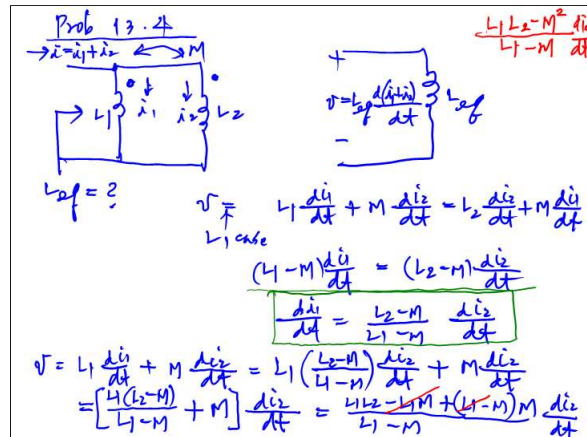 Prob 13.4
→ i = i₁+i₂ M
L₁ i₁ i₂ L₂
Lef = ?
+
v = Lef d(i₁+i₂)/dt Lef
−
(L₁L₂−M²)/(L₁−M) di₂/dt
v = L₁ di₁/dt + M di₂/dt = L₂ di₂/dt + M di₁/dt
↑
L₁ case
(L₁−M) di₁/dt = (L₂−M) di₂/dt
di₁/dt = (L₂−M)/(L₁−M) di₂/dt
v = L₁ di₁/dt + M di₂/dt = L₁ ((L₂−M)/(L₁−M)) di₂/dt + M di₂/dt
= [L₁(L₂−M)/(L₁−M) + M] di₂/dt = (L₁L₂ − L₁M + (L₁−M)M)/(L₁−M) di₂/dt